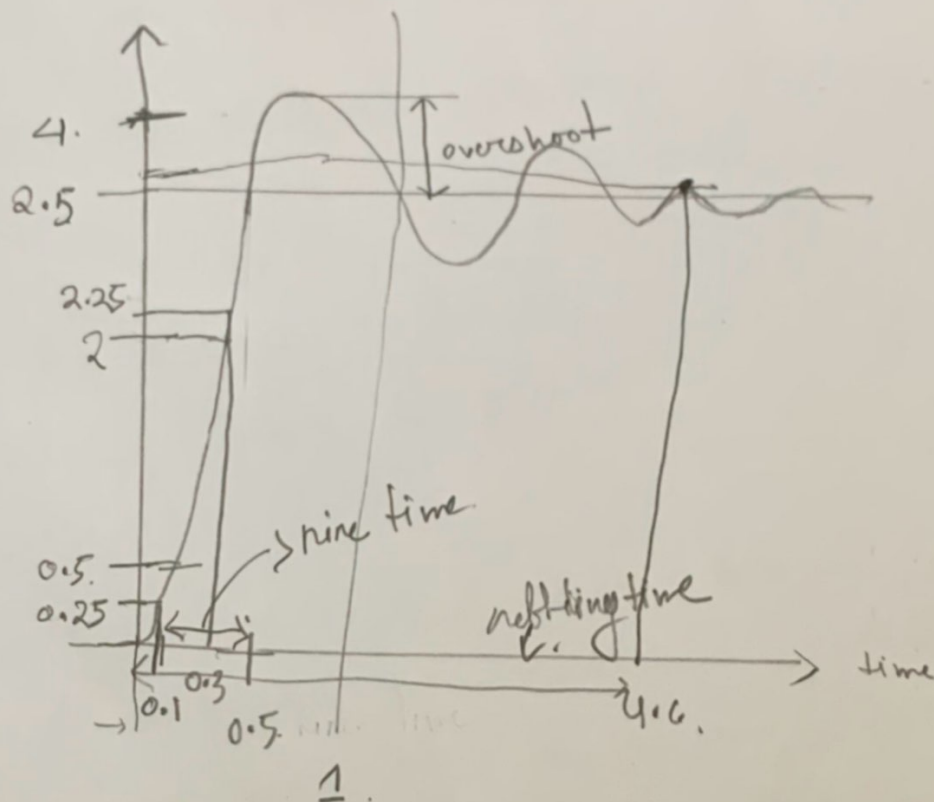 4.
overshoot
2.5
2.25
2
rise time
0.5.
0.25
settling time
time
0.1
0.3
0.5.
4.6.
1.